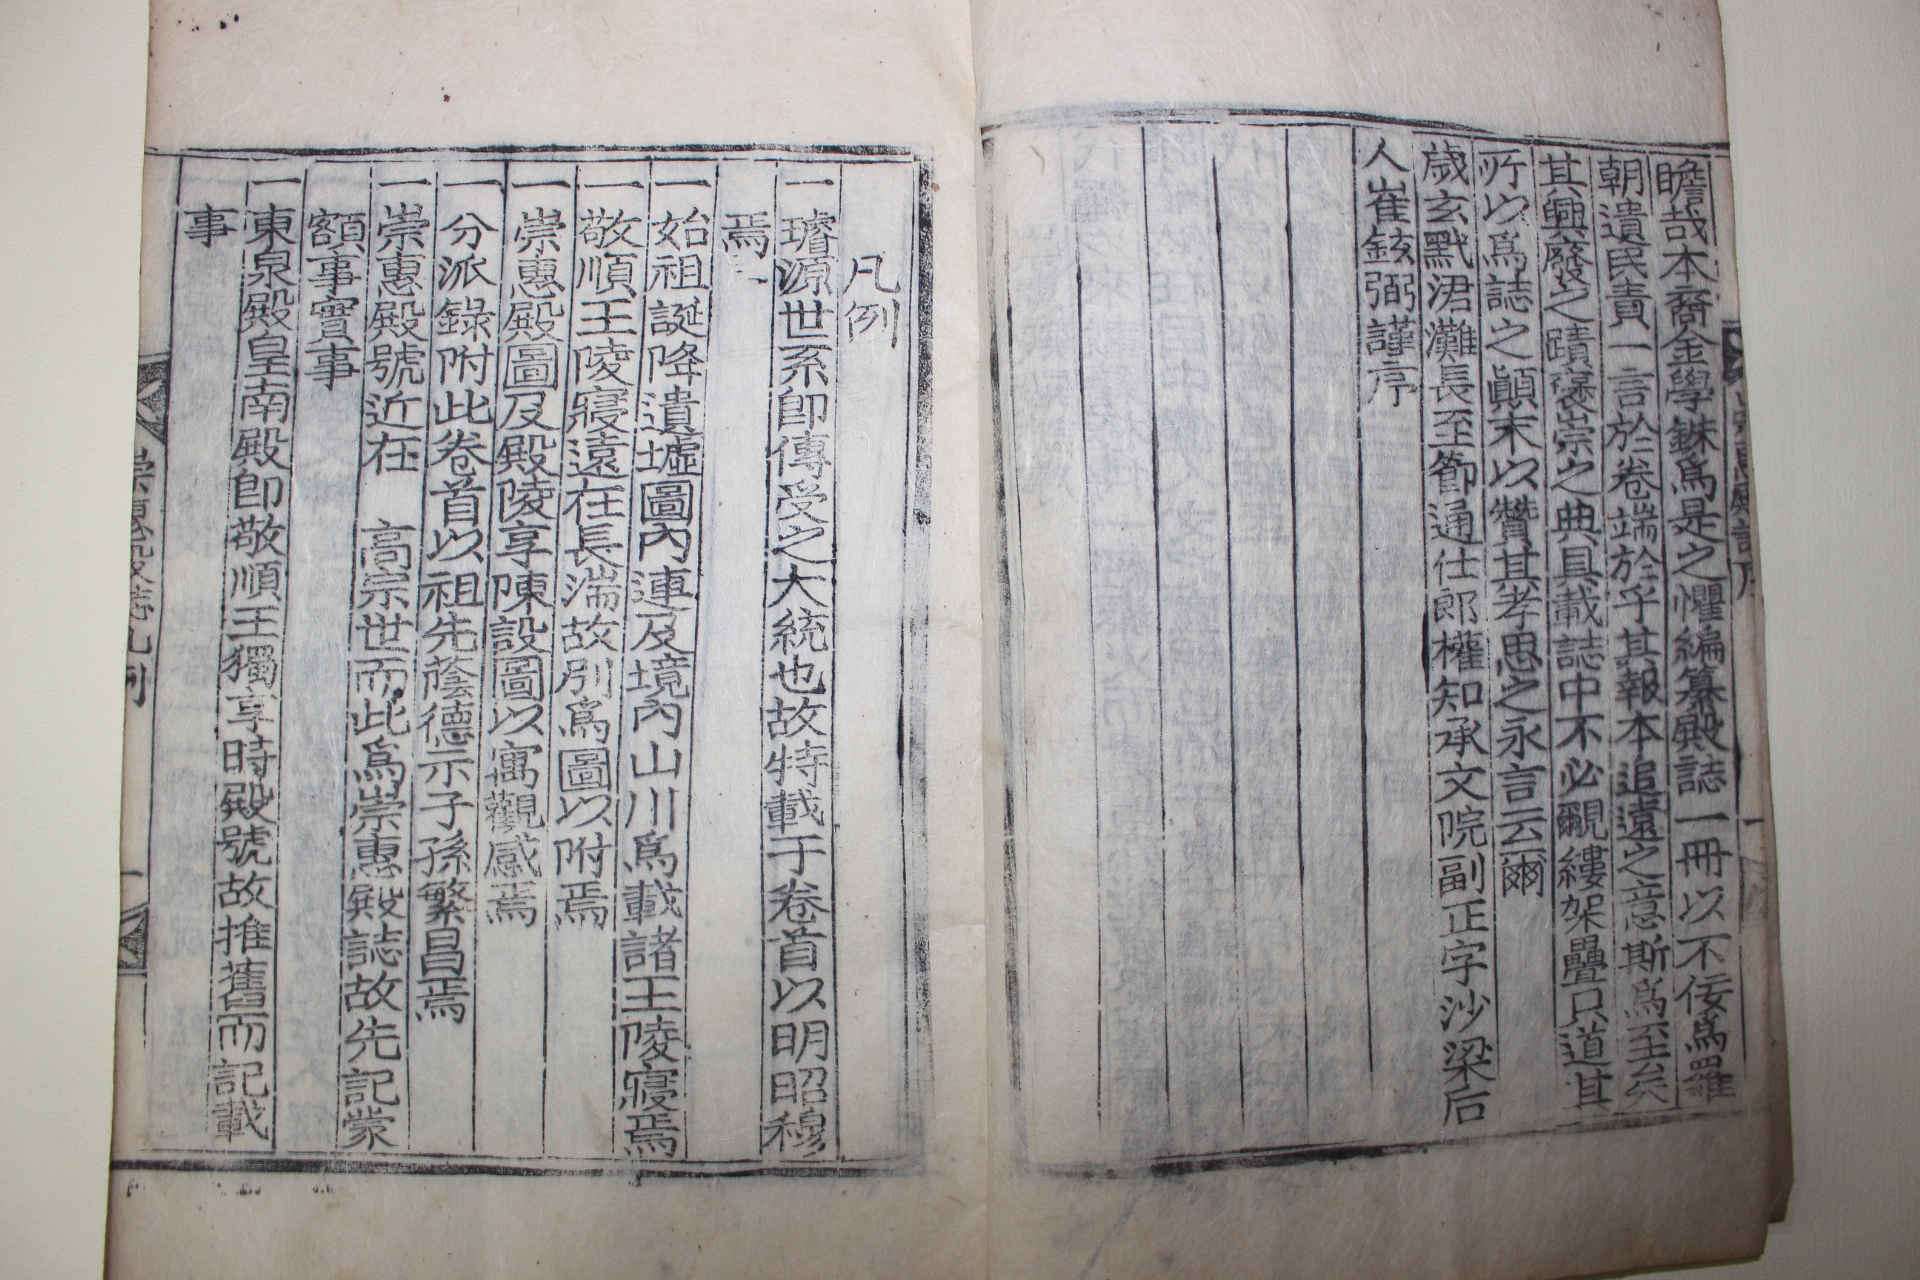 瞻哉本裔金學銖爲是之懼編纂殿誌一冊以不佞爲羅
朝遺民責一言於卷端於乎其報本追遠之意斯爲至矣
其興廢之蹟褒崇之典具載誌中不必覼縷架疊只道其
所以爲誌之顚末以贊其孝思之永言云爾
歲玄黓涒灘長至節通仕郎權知承文院副正字沙梁后
人崔鉉弼謹序
凡例
一璿源世系卽傳受之大統也故特載于卷首以明昭穆
焉
一始祖誕降遺墟圖內連及境內山川爲載諸王陵寢焉
一敬順王陵寢遠在長湍故別爲圖以附焉
一崇惠殿圖及殿陵享陳設圖以寓觀感焉
一分派錄附此卷首以祖先蔭德示子孫繁昌焉
一崇惠殿號近在 高宗世而此爲崇惠殿誌故先記蒙
額事實事
一東泉殿皇南殿卽敬順王獨享時殿號故推舊而記載
事
崇惠殿誌凡例 一